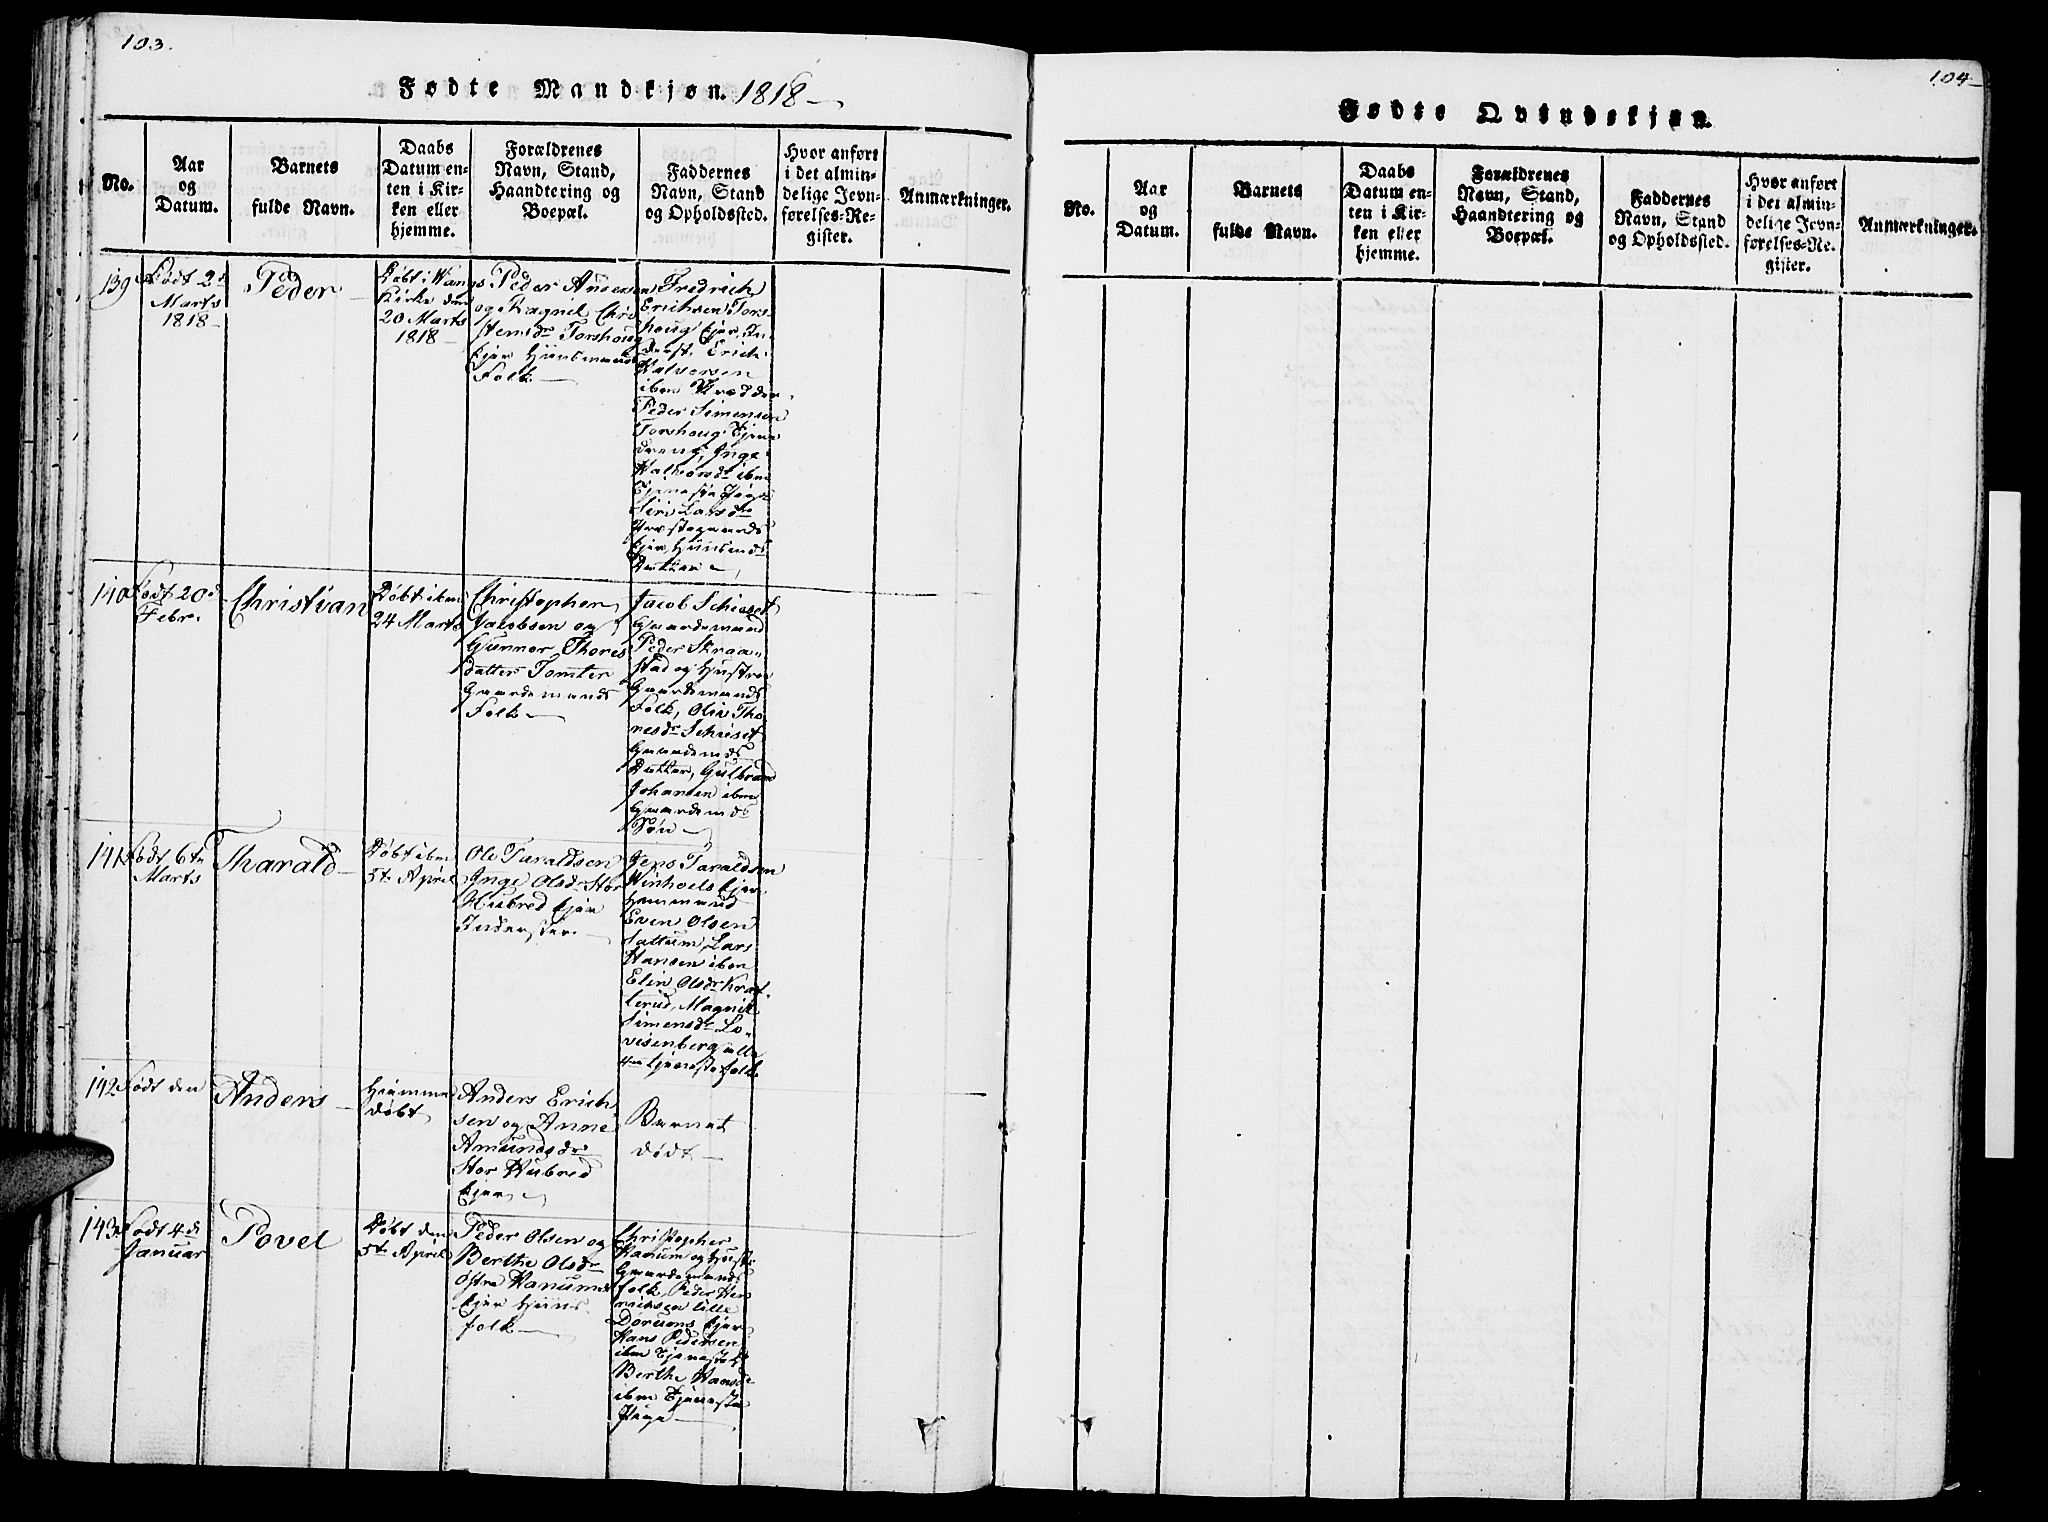 103.
Fødte Mandkjøn. 1818 –
No.
Aar
og
Datum.
Barnets
fulde Navn.
Daabs
Datum en-
ten i Kir-
ken eller
hjemme.
Forældrenes
Navn, Stand,
Haandtering og
Boepæl.
Faddernes
Navn, Stand
og Opholdssted.
Hvor anført
i det almin-
delige Jevn-
førelses-Re-
gister.
Anmærkninger.
139
Født 2d
Marts
1818 –
Peder
Døbt i Wangs
Kirke den
20 Marts
1818 –
Peder Andersen
og Ragnil Chri
stensdr Torshoug
Ejer Huusmands
Folk –
Fredrich
Erichsen Tors-
houg Ejer In-
derst, Erich
Halvorsen
iben
Peder Simensen
Torshoug Tjene
dreng, Inge
Halvorsdt iben
Tjeneste Pige
Siri Larsdtr
Præstegaards
Ejer Huusmds
Datter –
140
Født 20d
Febr.
Christian
Døbt iben
24 Marts
Christopher
Jacobsen og
Gunnor Thores
datter Tomter
Gaardemands
Folk –
Jacob Schieset
Gaardemand
Peder Skraa-
stad og Hustroe
Gaardemands
Folk, Oliv Tho
resdr Schieset
Gaardemds
Datter, Gulbrand
Johansen iben
Gaardemds
Søn –
141
Født 6te
Marts
Tharald –
Døbt iben
5te April
Ole Taraldsen
Inge Olsdr Stor
Hubred Ejer
Inderster –
Jens Taraldsen
Winhoels Ejer
Huusmand
Even Olsen
Sattum, Lars
Hansen iben
Elin Olsdr Krat-
terud, Magnil
Simensdr Lo-
visenberg alle
tjenestefolk
142
Født den
Anders –
Hjemme
døbt
Anders Erich
sen og Anne
Amundsdr
Stor Hubred
Ejer –
Barnet
dødt –
143
Født 4d
Januar
Povel
Døbt den
5te April
Peder Olsen og
Berthe Olsdr
Østre Hanums
Ejer Huus
folk –
Christopher
Hanum og Hust:
Gaardemands
folk, Peder Hen
richsen lille
Dørums Ejer
Hans Pedersen
iben Tjeneste
Berthe Hansdr
iben Tjeneste
Pige –
104 –
Fødte Qvindekjøn.
No.
Aar
og
Datum.
Barnets
fulde Navn.
Daabs
Datum en-
ten i Kir-
ken eller
hjemme.
Forældrenes
Navn, Stand,
Haandtering og
Boepæl.
Faddernes
Navn, Stand
og Opholdssted.
Hvor anført
i det almin-
delige Jevn-
førelses-Re-
gister.
Anmærkninger.